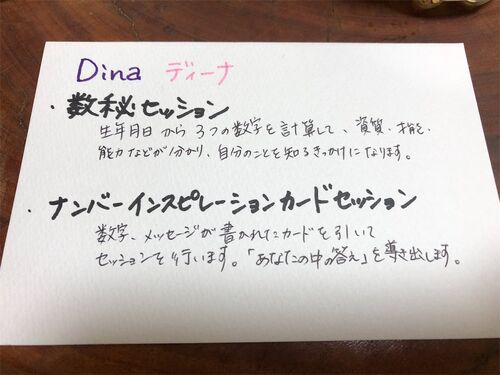 Dina ディーナ
・数秘セッション
生年月日から3つの数字を計算して、資質、才能、
能力などが分かり、自分のことを知るきっかけになります。
・ナンバーインスピレーションカードセッション
数字、メッセージが書かれたカードを引いて
セッションを行います。「あなたの中の答え」を導き出します。